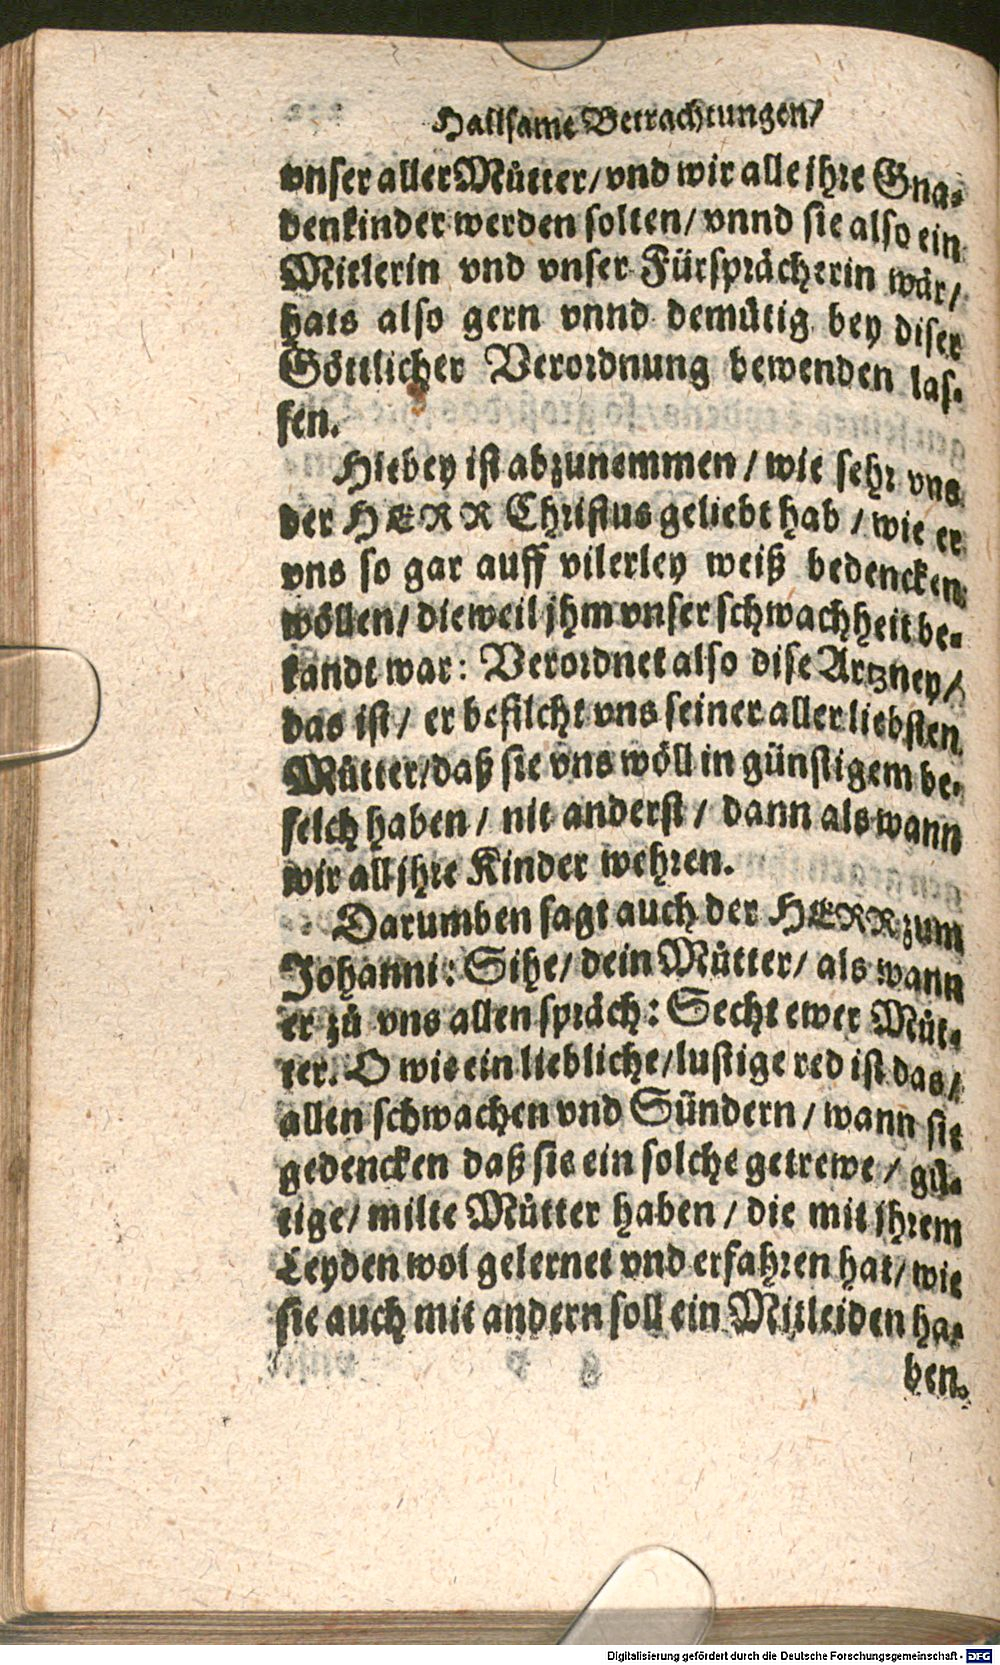 Hailsame Betrachtungen/
vnser aller Můtter/ vnd wir alle jhre Gna-
denkinder werden solten/ vnnd sie also ein
Mitlerin vnd vnser Fürsprächerin wär/
hats also gern vnnd demütig bey diser
Göttlicher Verordnung bewenden las-
sen.
Hiebey ist abzunemmen / wie sehr vns
der HERR Christus geliebt hab / wie er
vns so gar auff vilerley weiß bedencken
wöllen/ dieweil jhm vnser schwachheit be-
kandt war: Verordnet also dise Artzney/
das ist/ er befilcht vns seiner aller liebsten
Můtter/ daß sie vns wöll in günstigem be-
felch haben / nit anderst / dann als wann
wir all jhre Kinder wehren.
Darumben sagt auch der HERR zum
Johanni: Sihe/ dein Můtter/ als wann
er zů vns allen spräch: Secht ewer Můt-
ter. O wie ein liebliche/ lustige red ist das/
allen schwachen vnd Sündern / wann sie
gedencken daß sie ein solche getrewe / gü-
tige/ milte Můtter haben / die mit jhrem
Leyden wol gelernet vnd erfahren hat/ wie
sie auch mit andern soll ein Mitleiden ha-
ben.
Digitalisierung gefördert durch die Deutsche Forschungsgemeinschaft - DFG